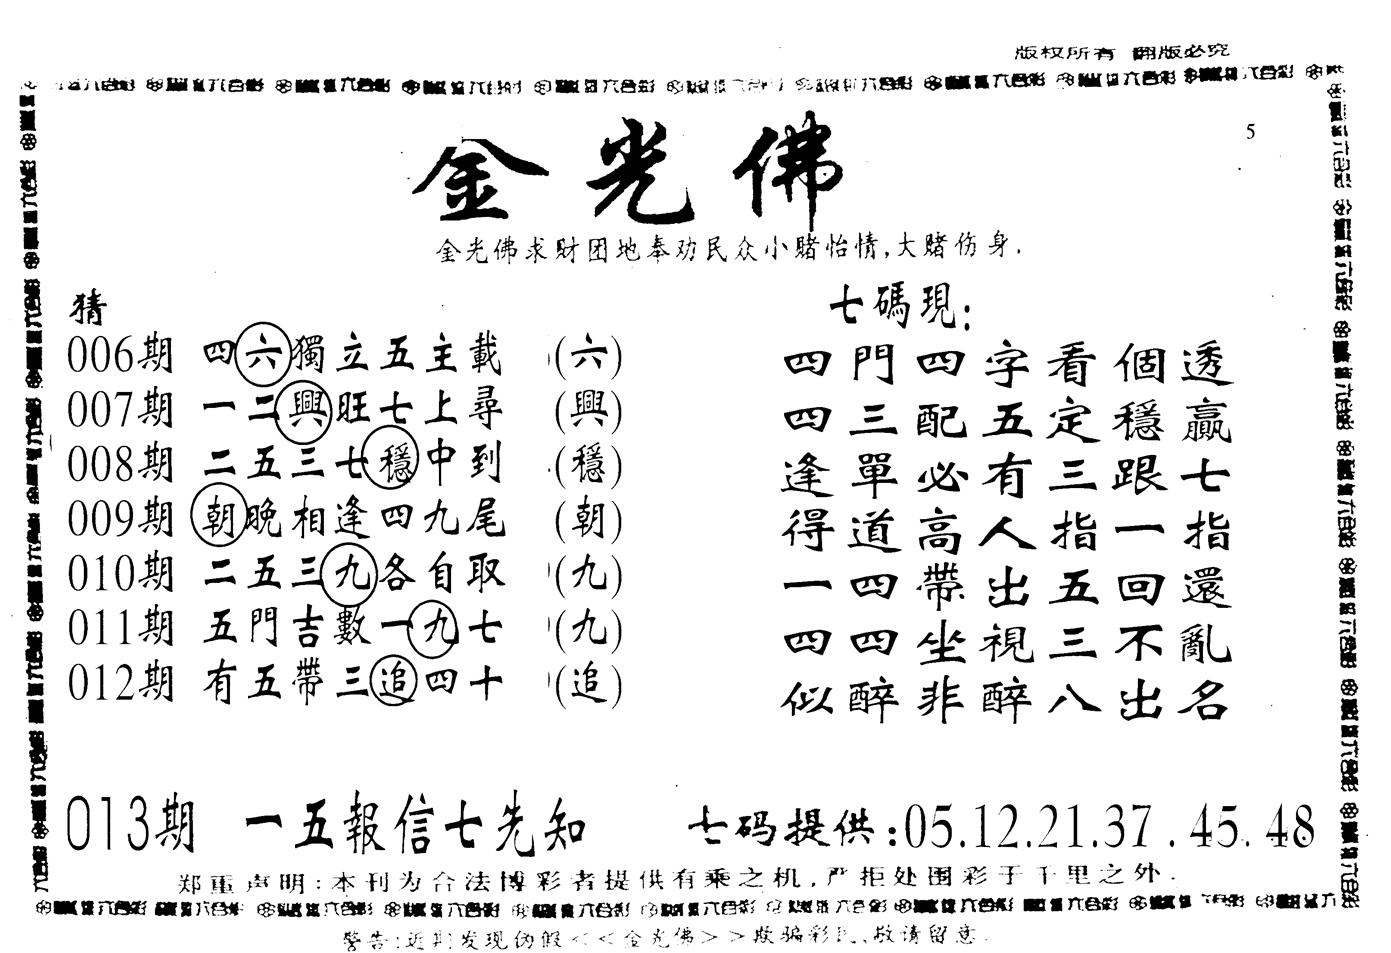 版权所有 翻版必究
5
金光佛
金光佛求财团地奉劝民众小赌怡情,大赌伤身.
猜
006期 四六獨立五主載 (六)
007期 一二興旺七上尋 (興)
008期 二五三七穩中到 (穩)
009期 朝晚相逢四九尾 (朝)
010期 二五三九各自取 (九)
011期 五門吉數一九七 (九)
012期 有五帶三追四十 (追)
七碼現:
四門四字看個透
四三配五定穩贏
逢單必有三跟七
得道高人指一指
一四帶出五回還
四四坐視三不亂
似醉非醉八出名
013期 一五報信七先知
七码提供:05.12.21.37.45.48
郑重声明:本刊为合法博彩者提供有乘之机,严拒处围彩于千里之外.
警告:近期发现伪假<<金光佛>>欺骗彩民,敬请留意.